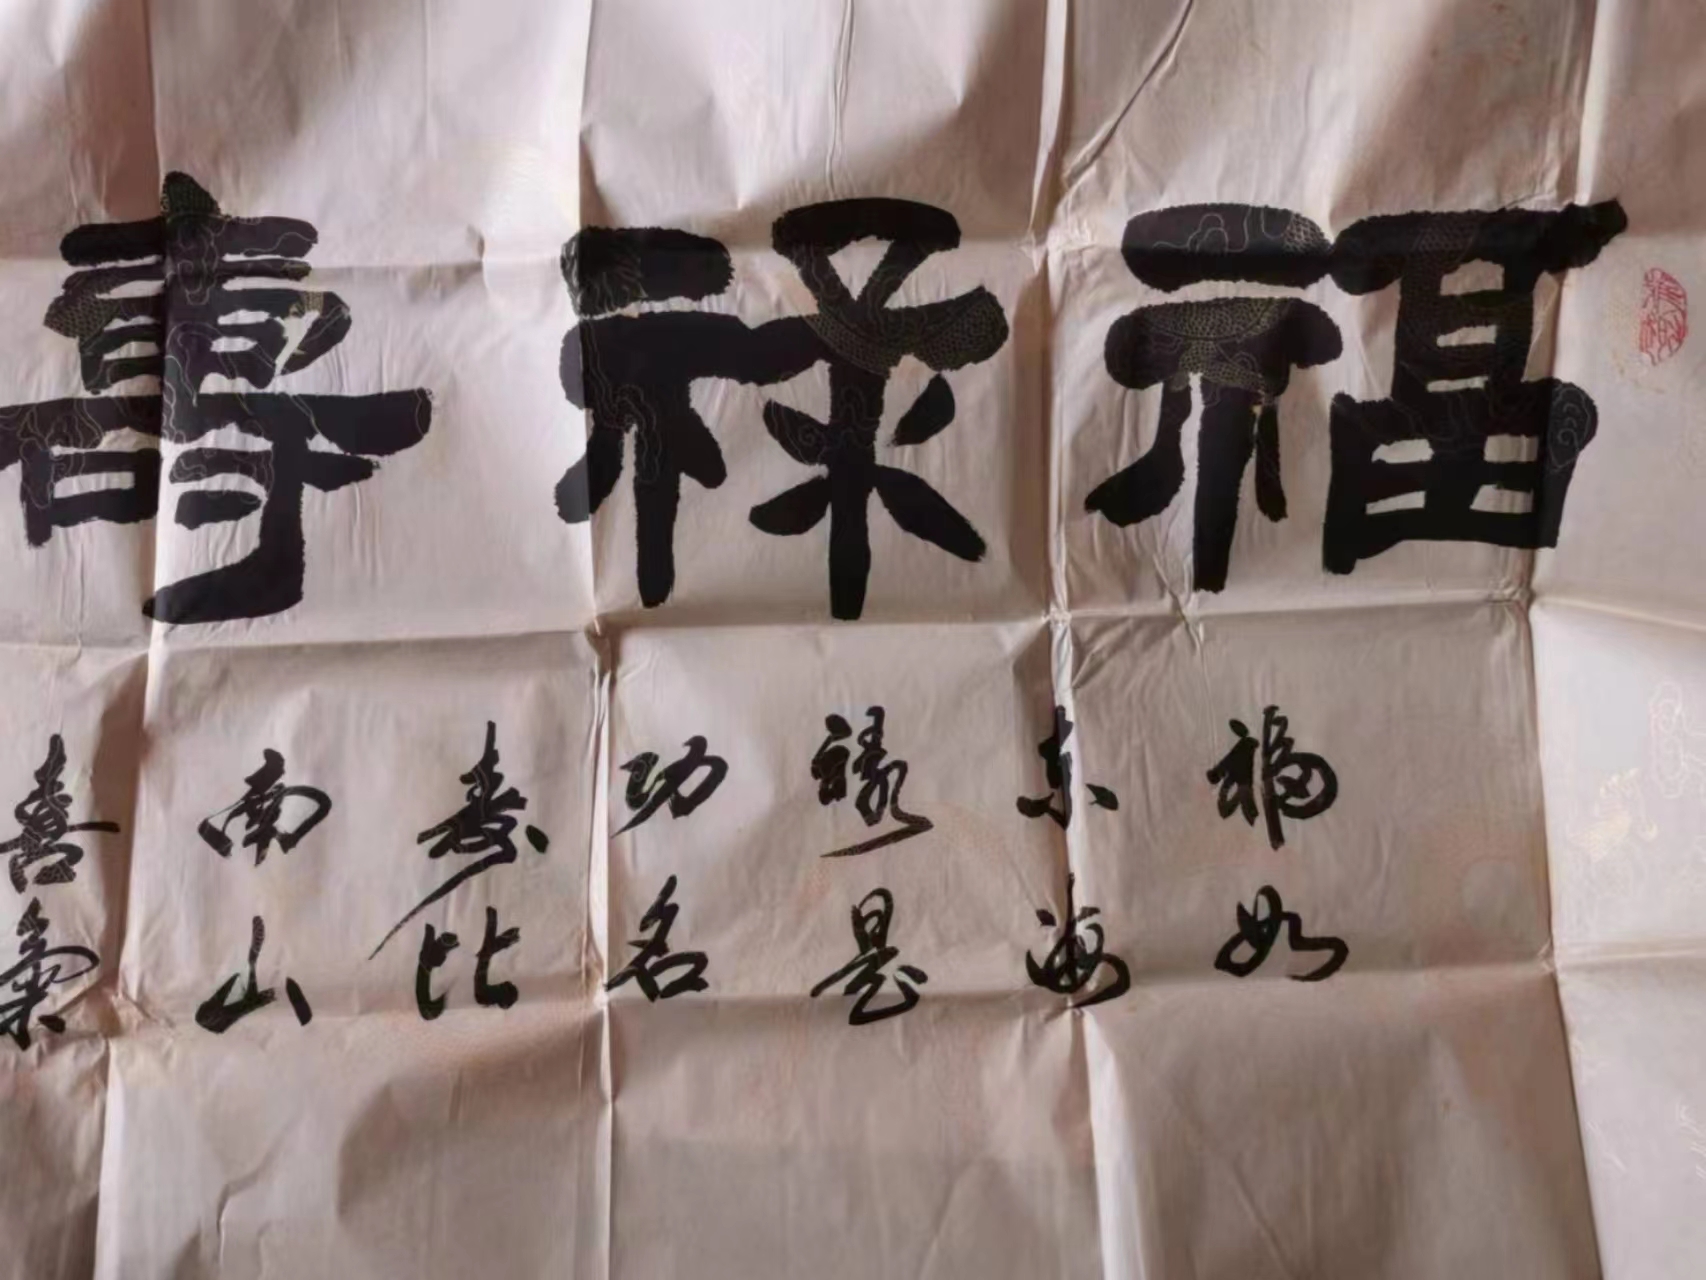 福禄壽
福如
东海
禄是
功名
寿比
南山
喜氣